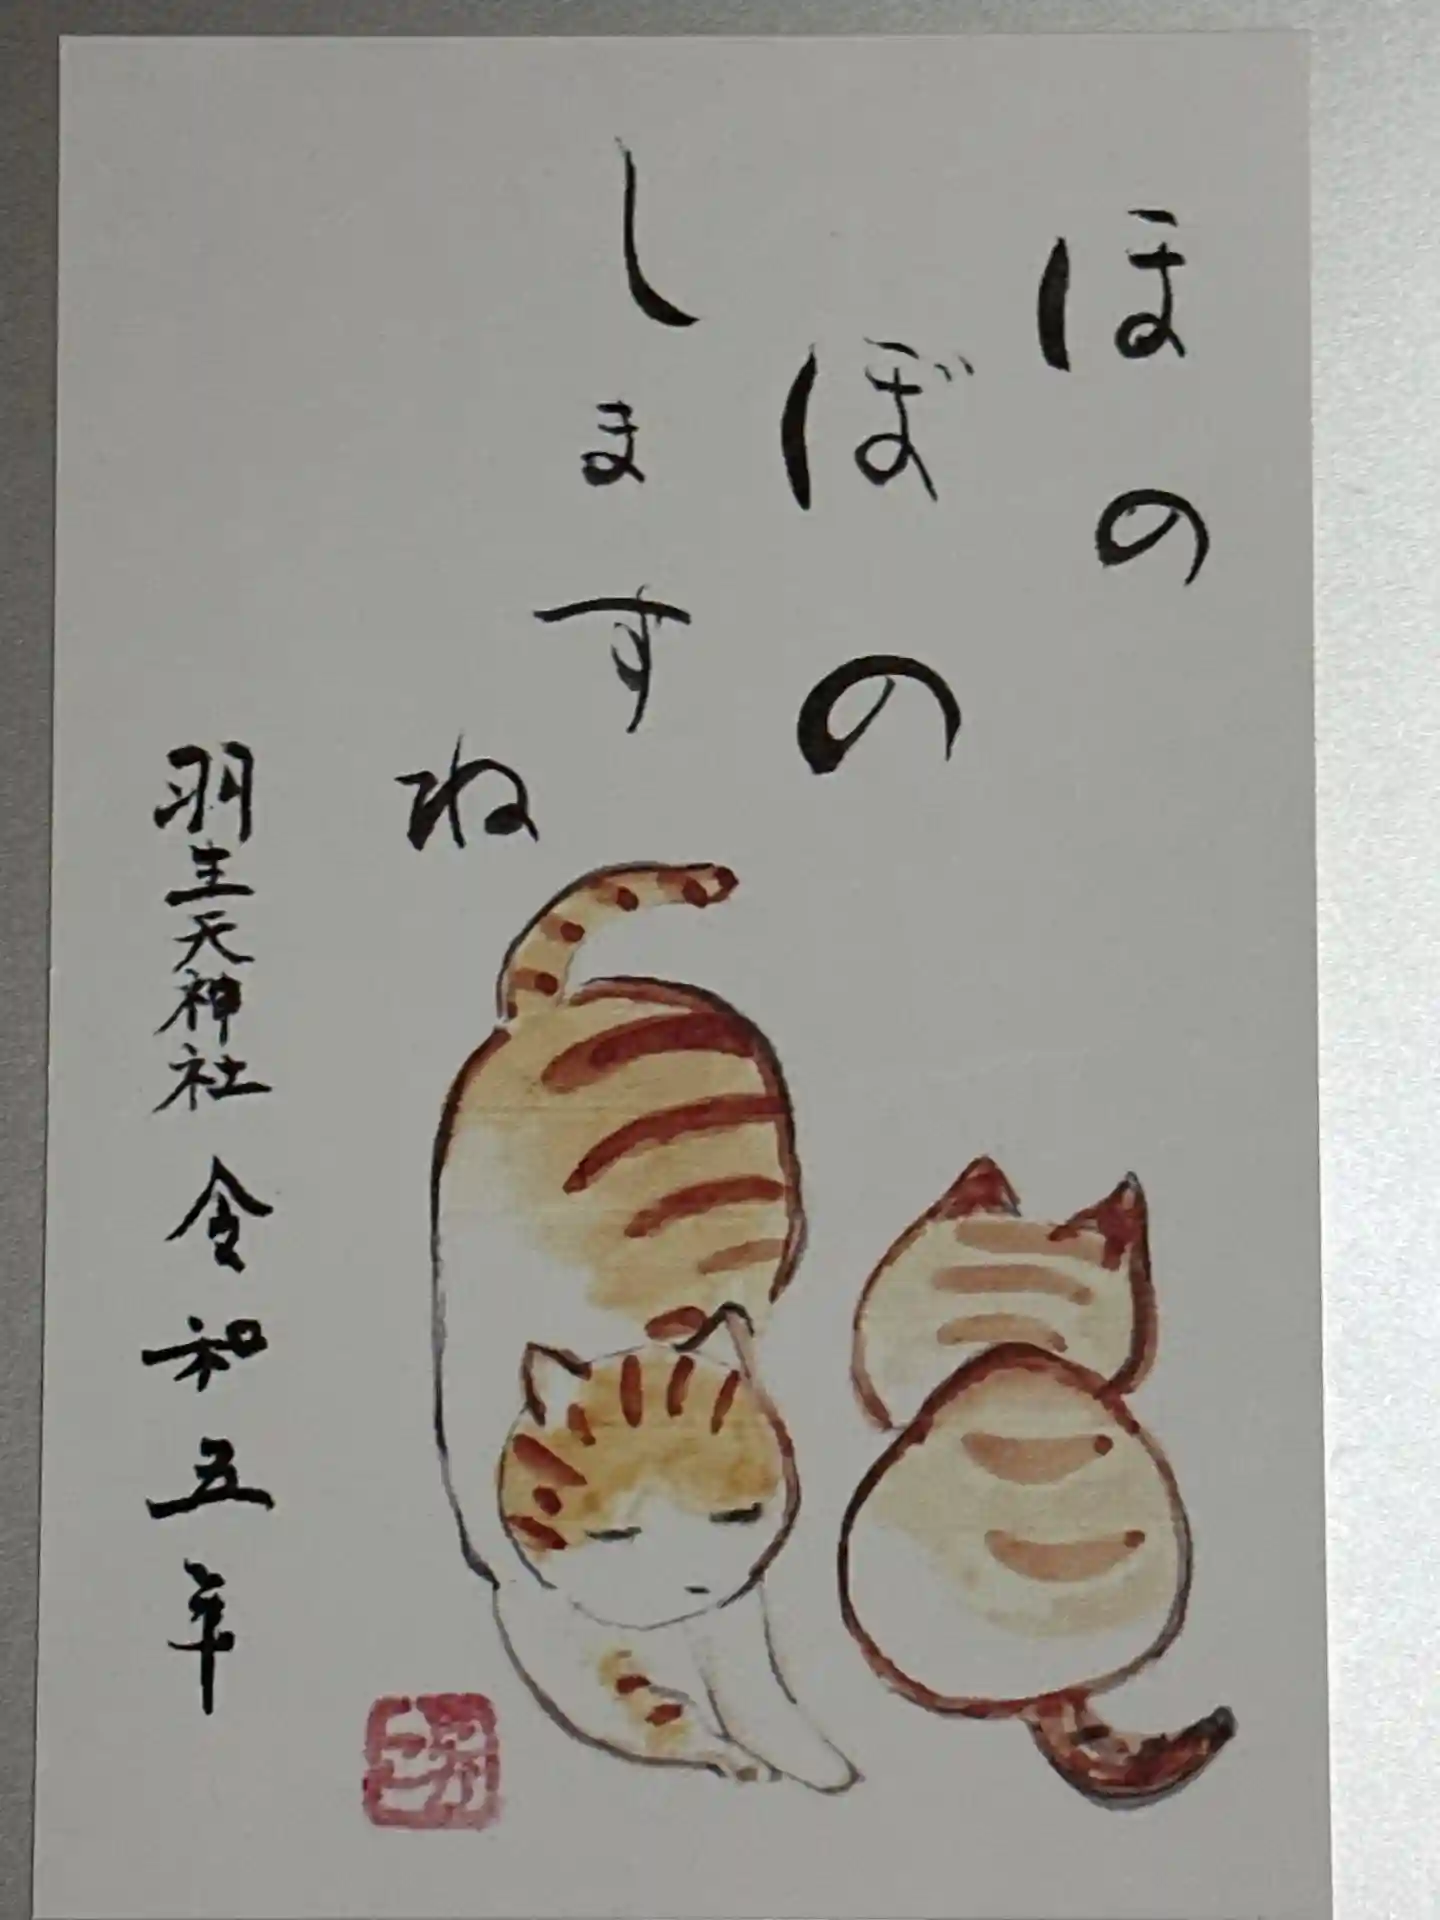 ほの
ぼの
します
ね
羽生天神社 令和五年